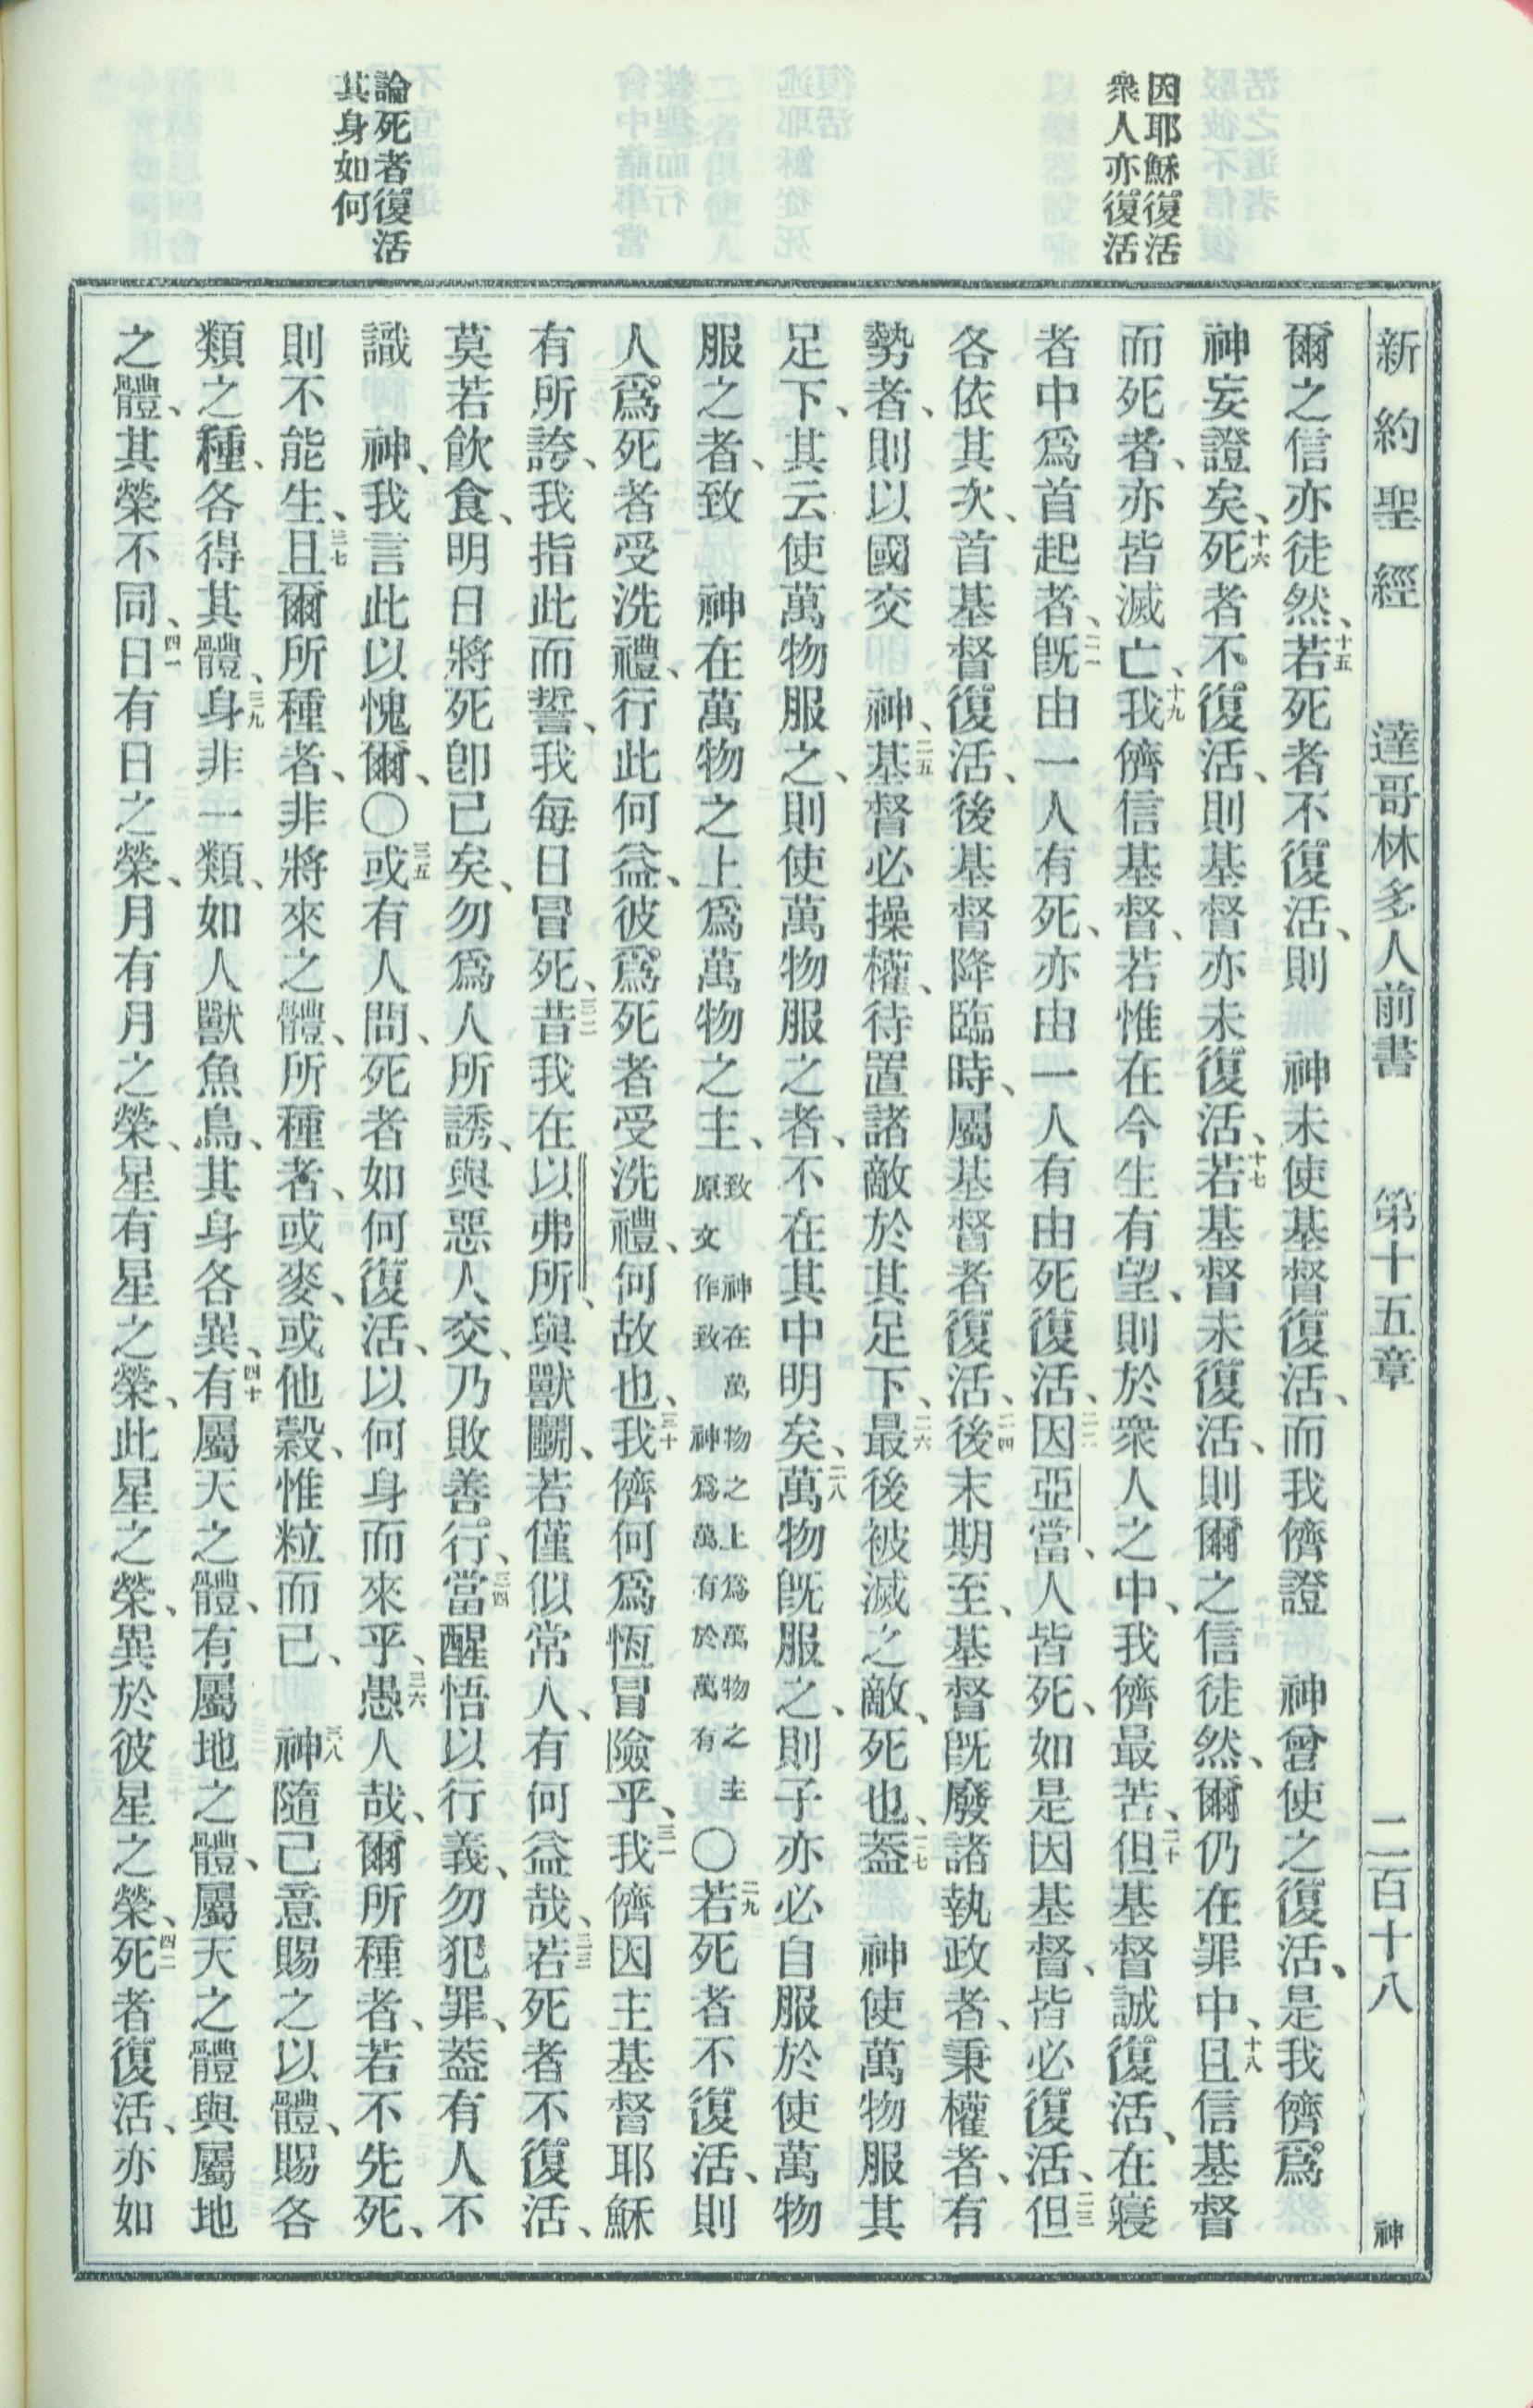 新約聖經　達哥林多人前書　第十五章　二百十八　神
因耶穌復活
衆人亦復活
論死者復活
其身如何
爾之信亦徒然、十五若死者不復活、則　神未使基督復活、而我儕證　神曾使之復活、是我儕爲
神妄證矣、十六死者不復活、則基督亦未復活、十七若基督未復活、則爾之信徒然、爾仍在罪中、十八且信基督
而死者、亦皆滅亡、十九我儕信基督、若惟在今生有望、則於衆人之中、我儕最苦、二十但基督誠復活、在寢
者中爲首起者、二一旣由一人有死、亦由一人有由死復活、二二因亞當、人皆死、如是因基督、皆必復活、二三但
各依其次、首基督復活、後基督降臨時、屬基督者復活、二四後末期至、基督旣廢諸執政者、秉權者、有
勢者、則以國交　神、二五基督必操權、待置諸敵於其足下、二六最後被滅之敵、死也、二七蓋　神使萬物服其
足下、其云使萬物服之、則使萬物服之者、不在其中明矣、二八萬物旣服之、則子亦必自服於使萬物
服之者、致　神在萬物之上爲萬物之主、致　神在萬物之上爲萬物之主原文作致神爲萬有於萬有〇二九若死者不復活、則
人爲死者受洗禮、行此何益、彼爲死者受洗禮、何故也、三十我儕何爲恆冒險乎、三一我儕因主基督耶穌
有所誇、我指此而誓、我每日冒死、三二昔我在以弗所、與獸鬭、若僅似常人、有何益哉、三三若死者不復活、
莫若飮食、明日將死卽已矣、勿爲人所誘、與惡人交、乃敗善行、三四當醒悟以行義、勿犯罪、蓋有人不
識　神、我言此以愧爾、〇三五或有人問、死者如何復活、以何身而來乎、三六愚人哉、爾所種者、若不先死、
則不能生、三七且爾所種者、非將來之體、所種者、或麥、或他穀、惟粒而已、三八神隨己意賜之以體、賜各
類之種、各得其體、三九身非一類、如人獸魚鳥、其身各異、四十有屬天之體、有屬地之體、屬天之體與屬地
之體、其榮不同、四一日有日之榮、月有月之榮、星有星之榮、此星之榮、異於彼星之榮、四二死者復活、亦如